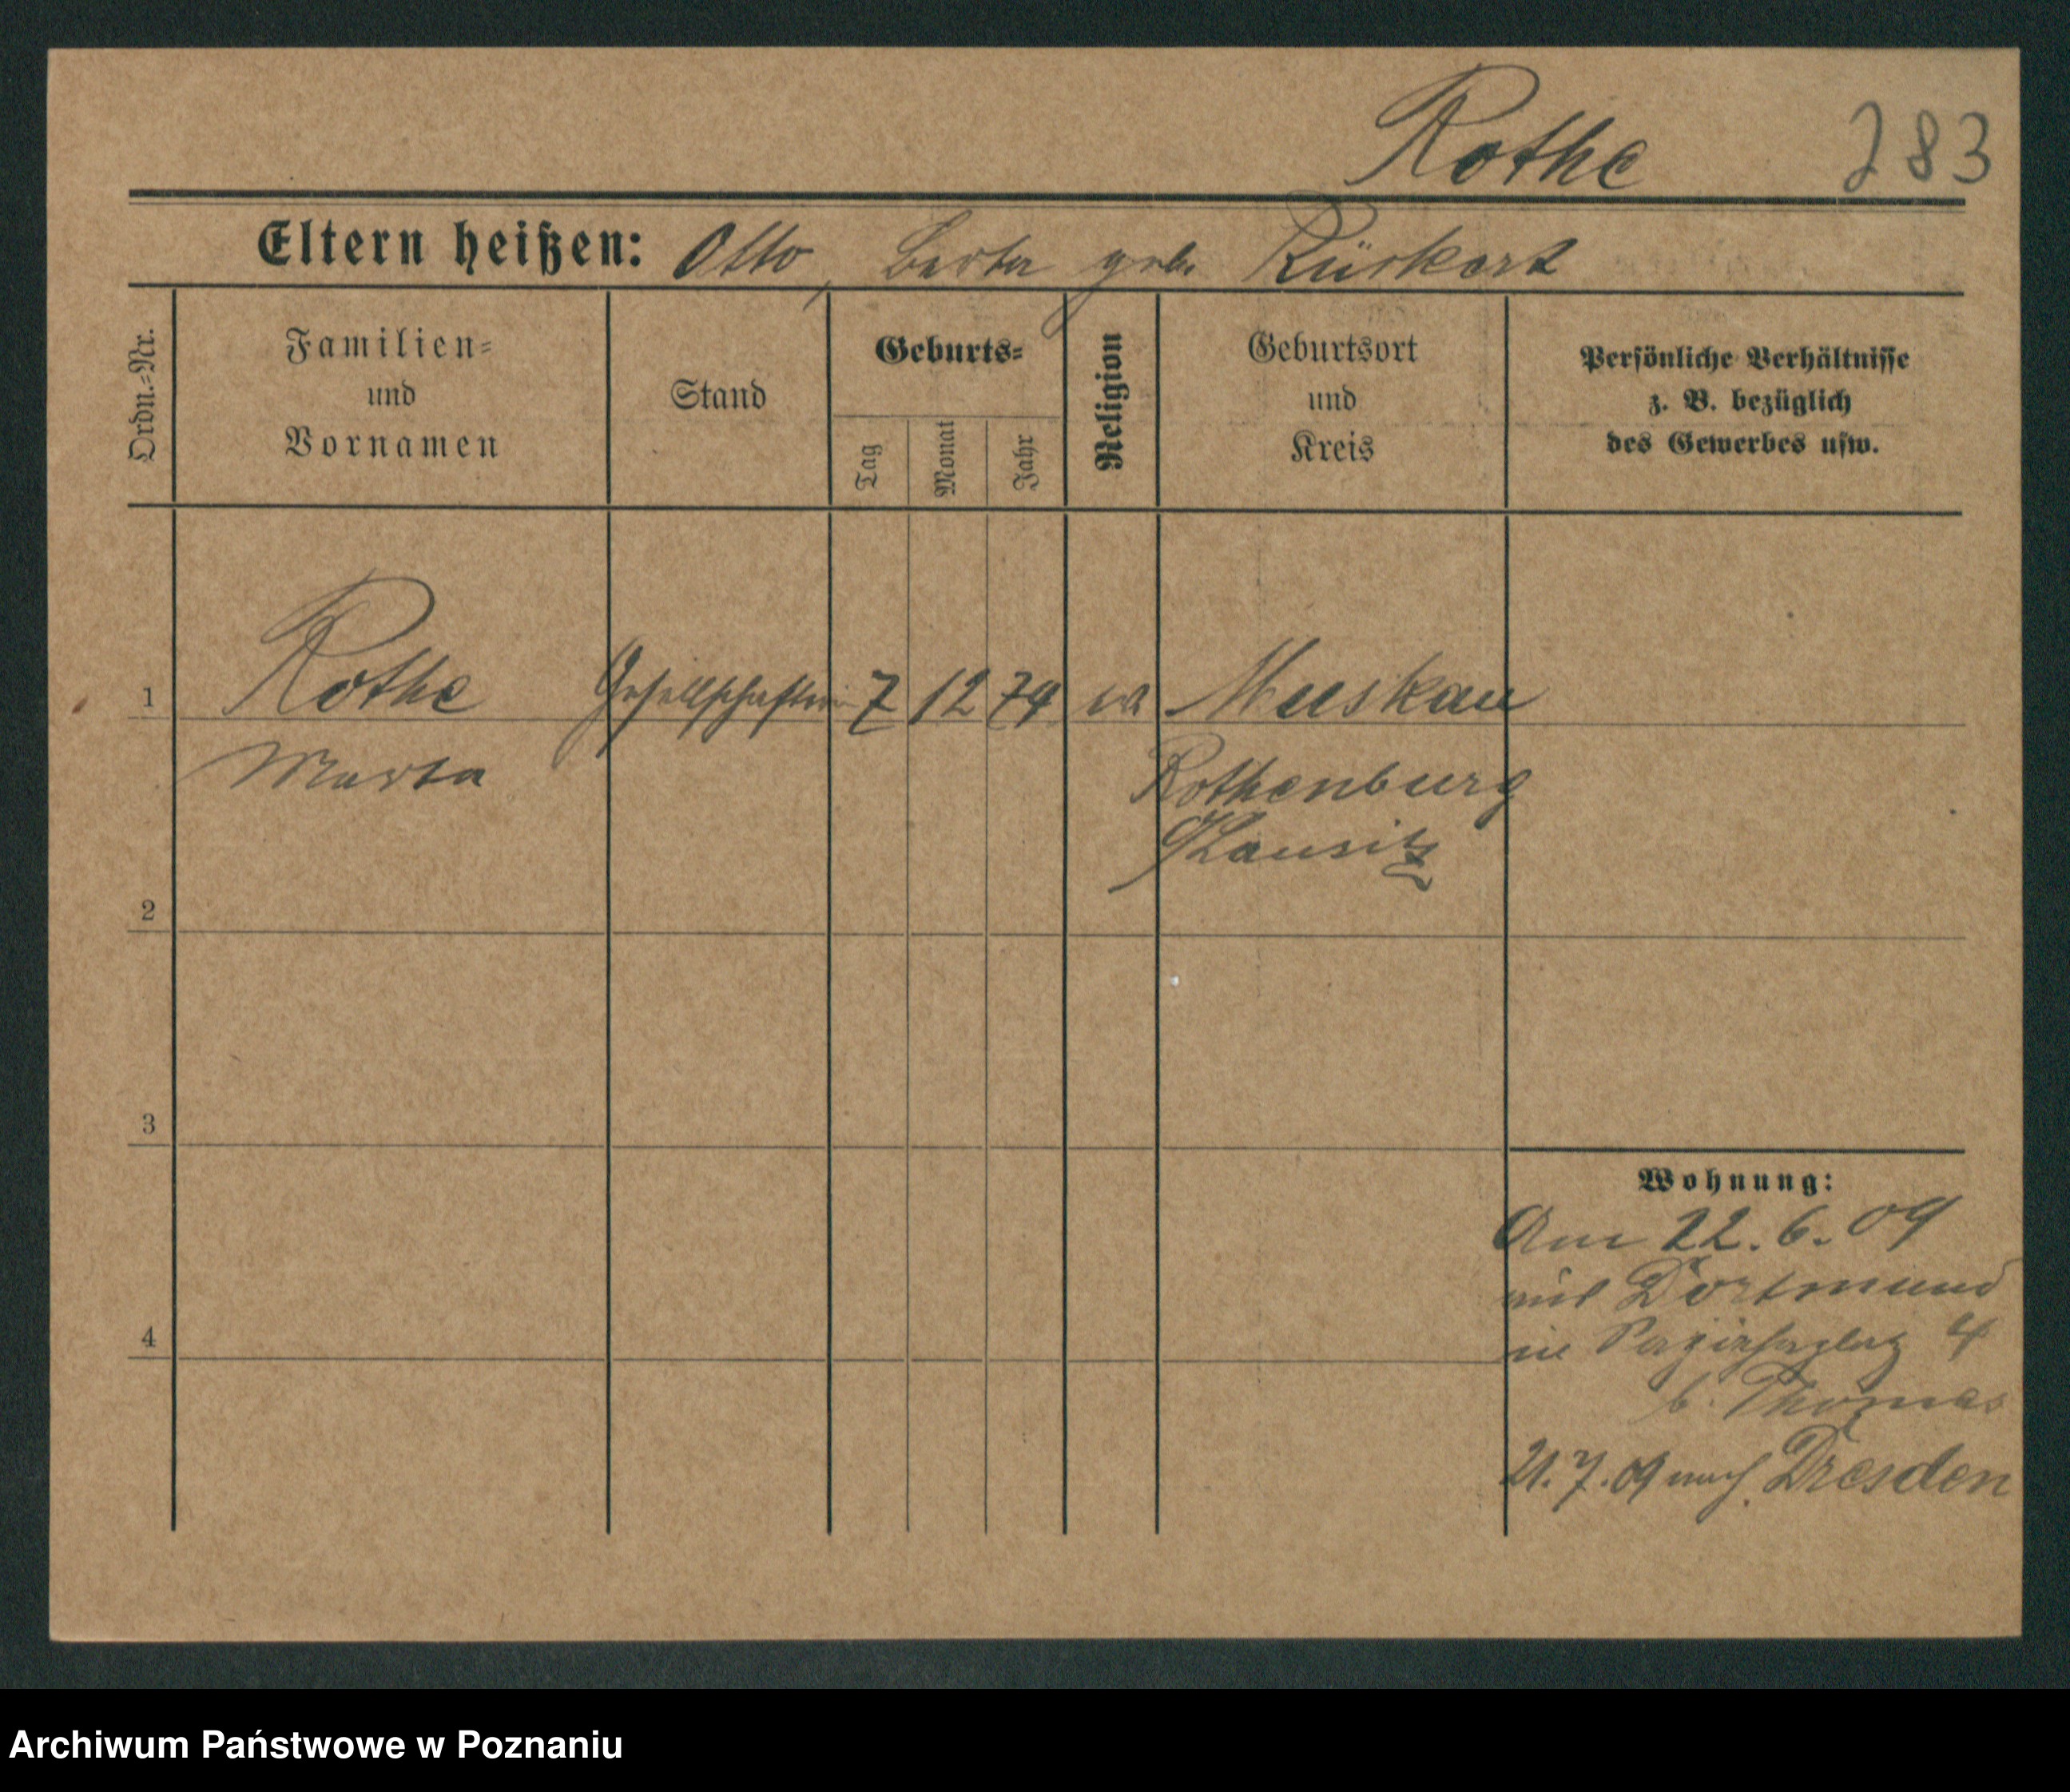 Rothe 283
Eltern heißen: Otto, Berta geb. Rückert
Ordn.=Nr.
Familien=
und
Vornamen
Stand
Geburts=
Tag
Monat
Jahr
Religion
Geburtsort
und
Kreis
Persönliche Verhältnisse
z. B. bezüglich
des Gewerbes usw.
1 Rothe Gesellschafterin 7 12 74 ev Muskau
Marta Rothenburg
Lausitz
2
3
4
Wohnung:
Am 22.6.09
aus Dortmund
in 4
b. Thomas
21.7.09 nach Dresden
Archiwum Państwowe w Poznaniu